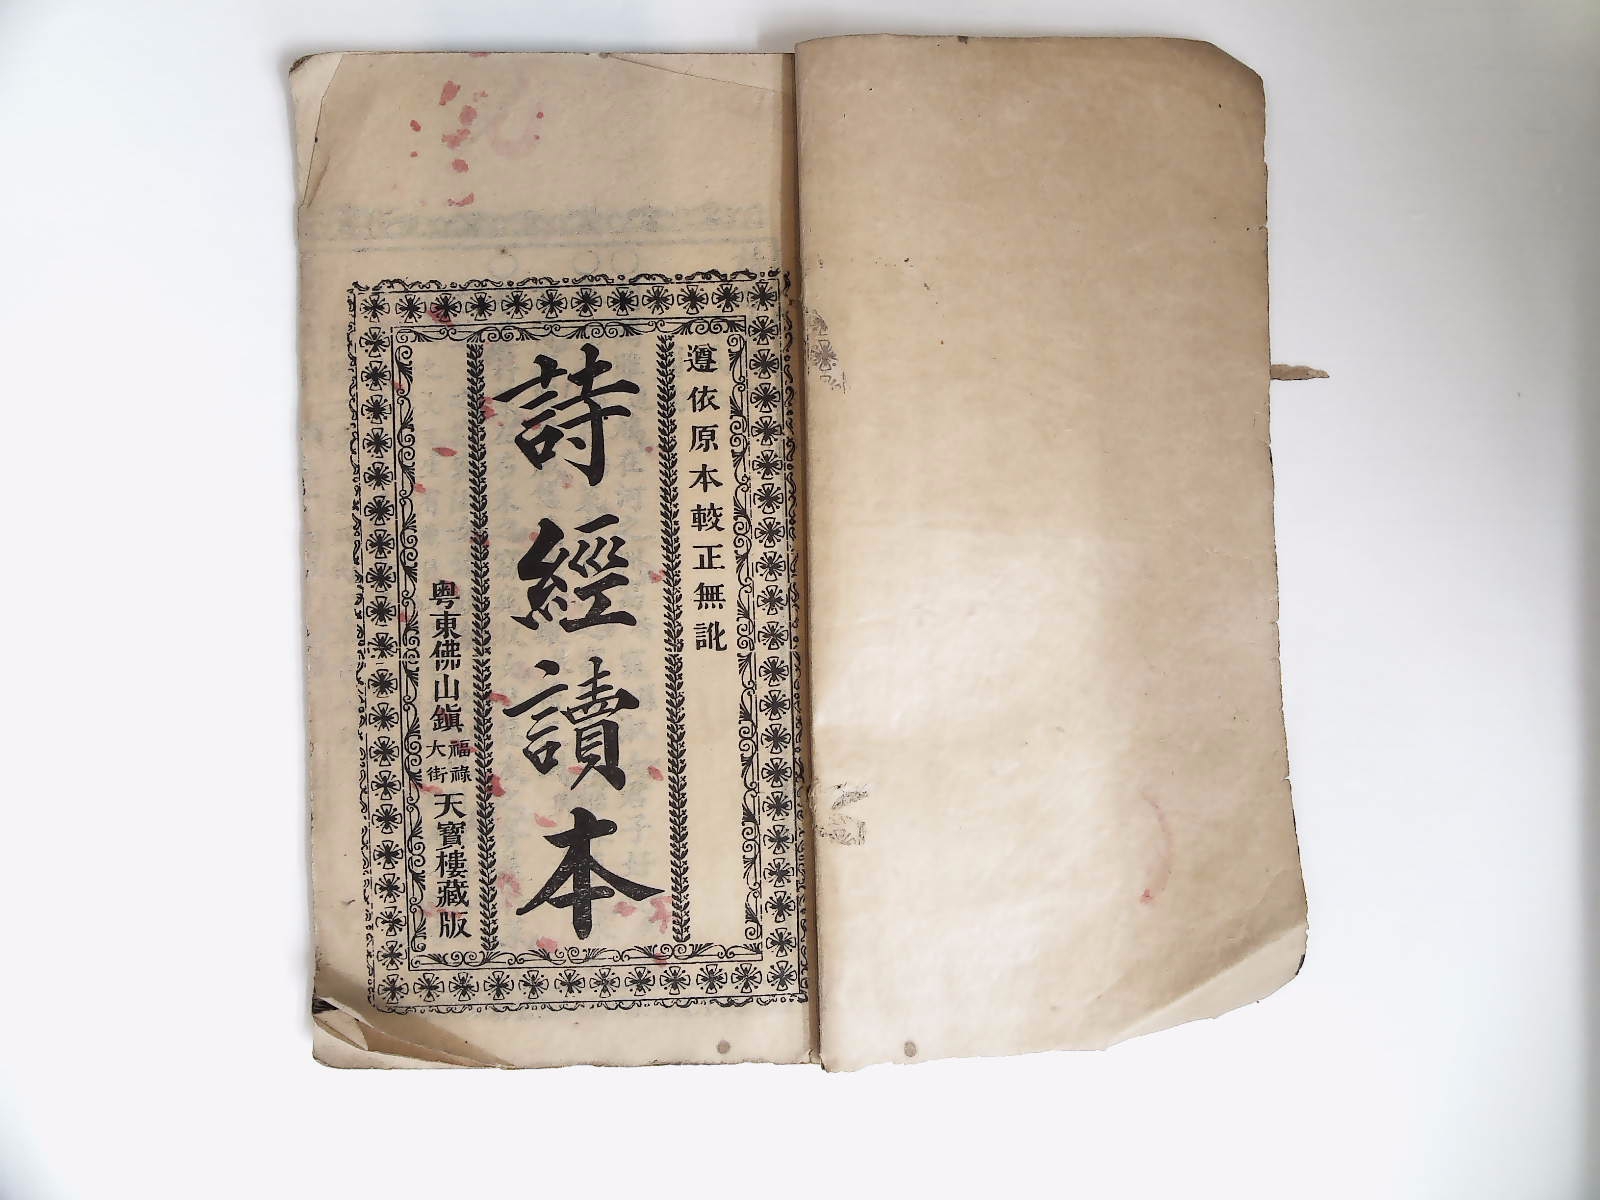 遵依原本較正無訛
詩經讀本
粵東佛山鎮福祿大街天寶樓藏版